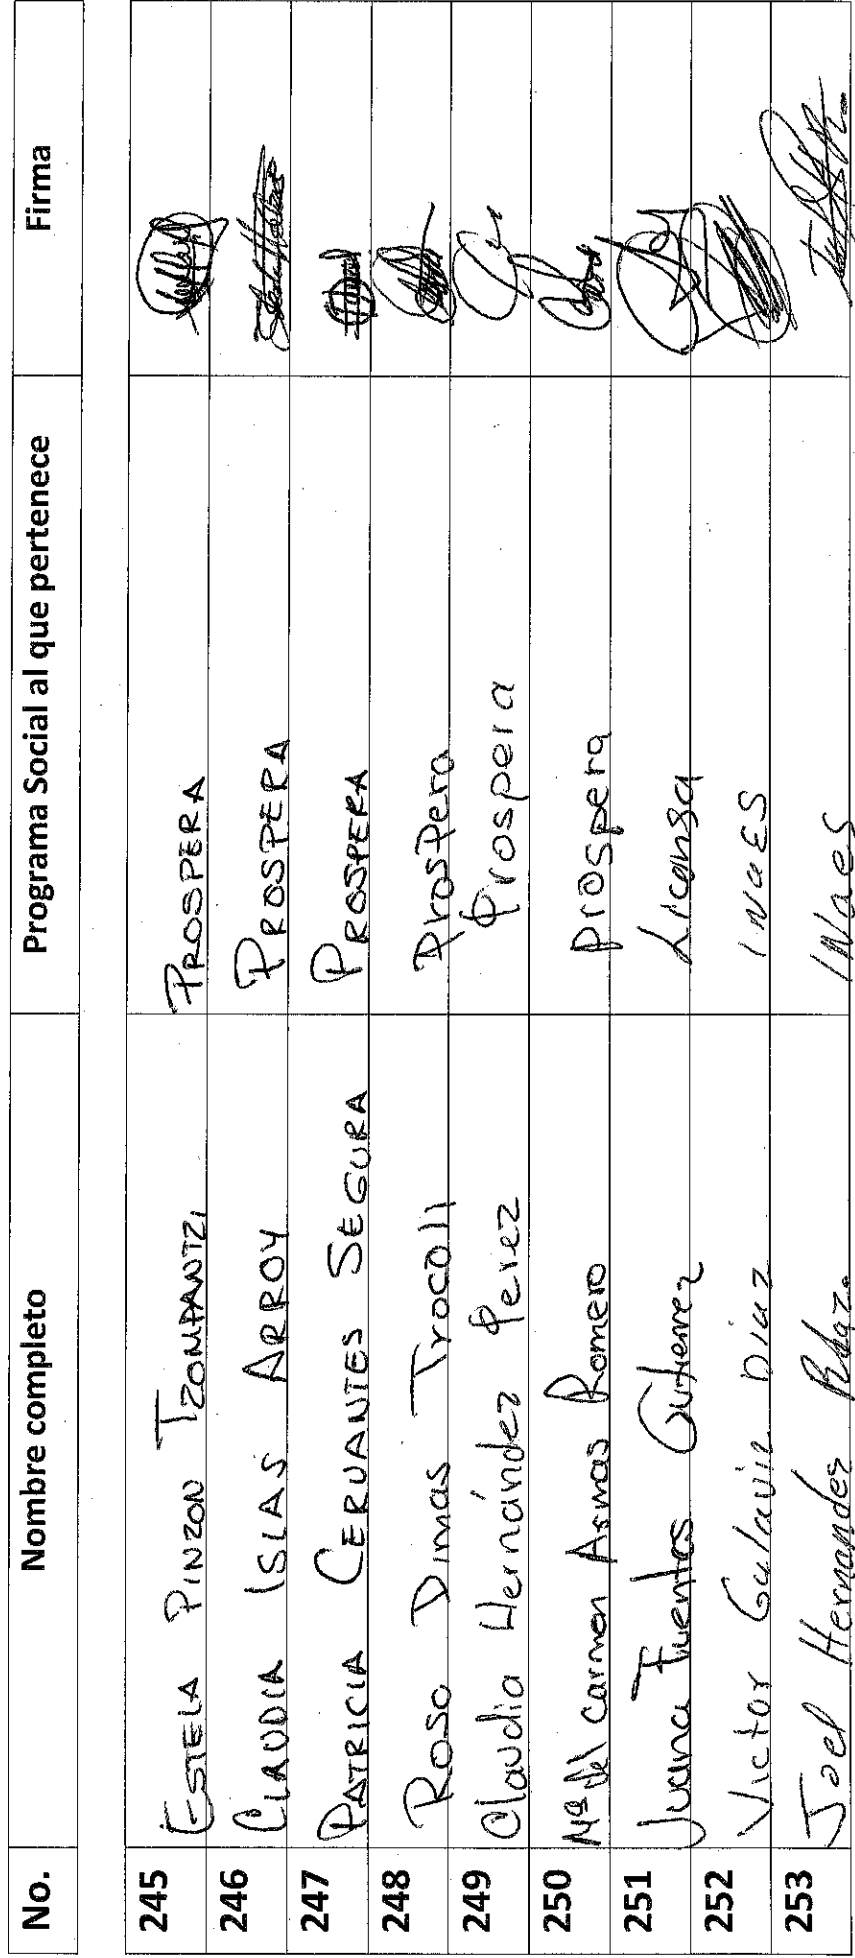 No. Nombre completo Programa Social al que pertenece Firma
245 ESTELA PINZON TZOMPANTZI PROSPERA
246 CLAUDIA ISLAS ARROY PROSPERA
247 PATRICIA CERVANTES SEGURA PROSPERA
248 Rosa Dimas Trocoli Prospera
249 Claudia Hernández Perez Prospera
250 Mª del Carmen Armas Romero prospera
251 Juana Fuentes Gutierrez Liconsa
252 Victor Galavir Diaz INaES
253 Joel Hernandez INaes